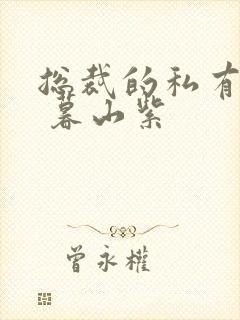 总裁的私有
暮山紫
曾永权